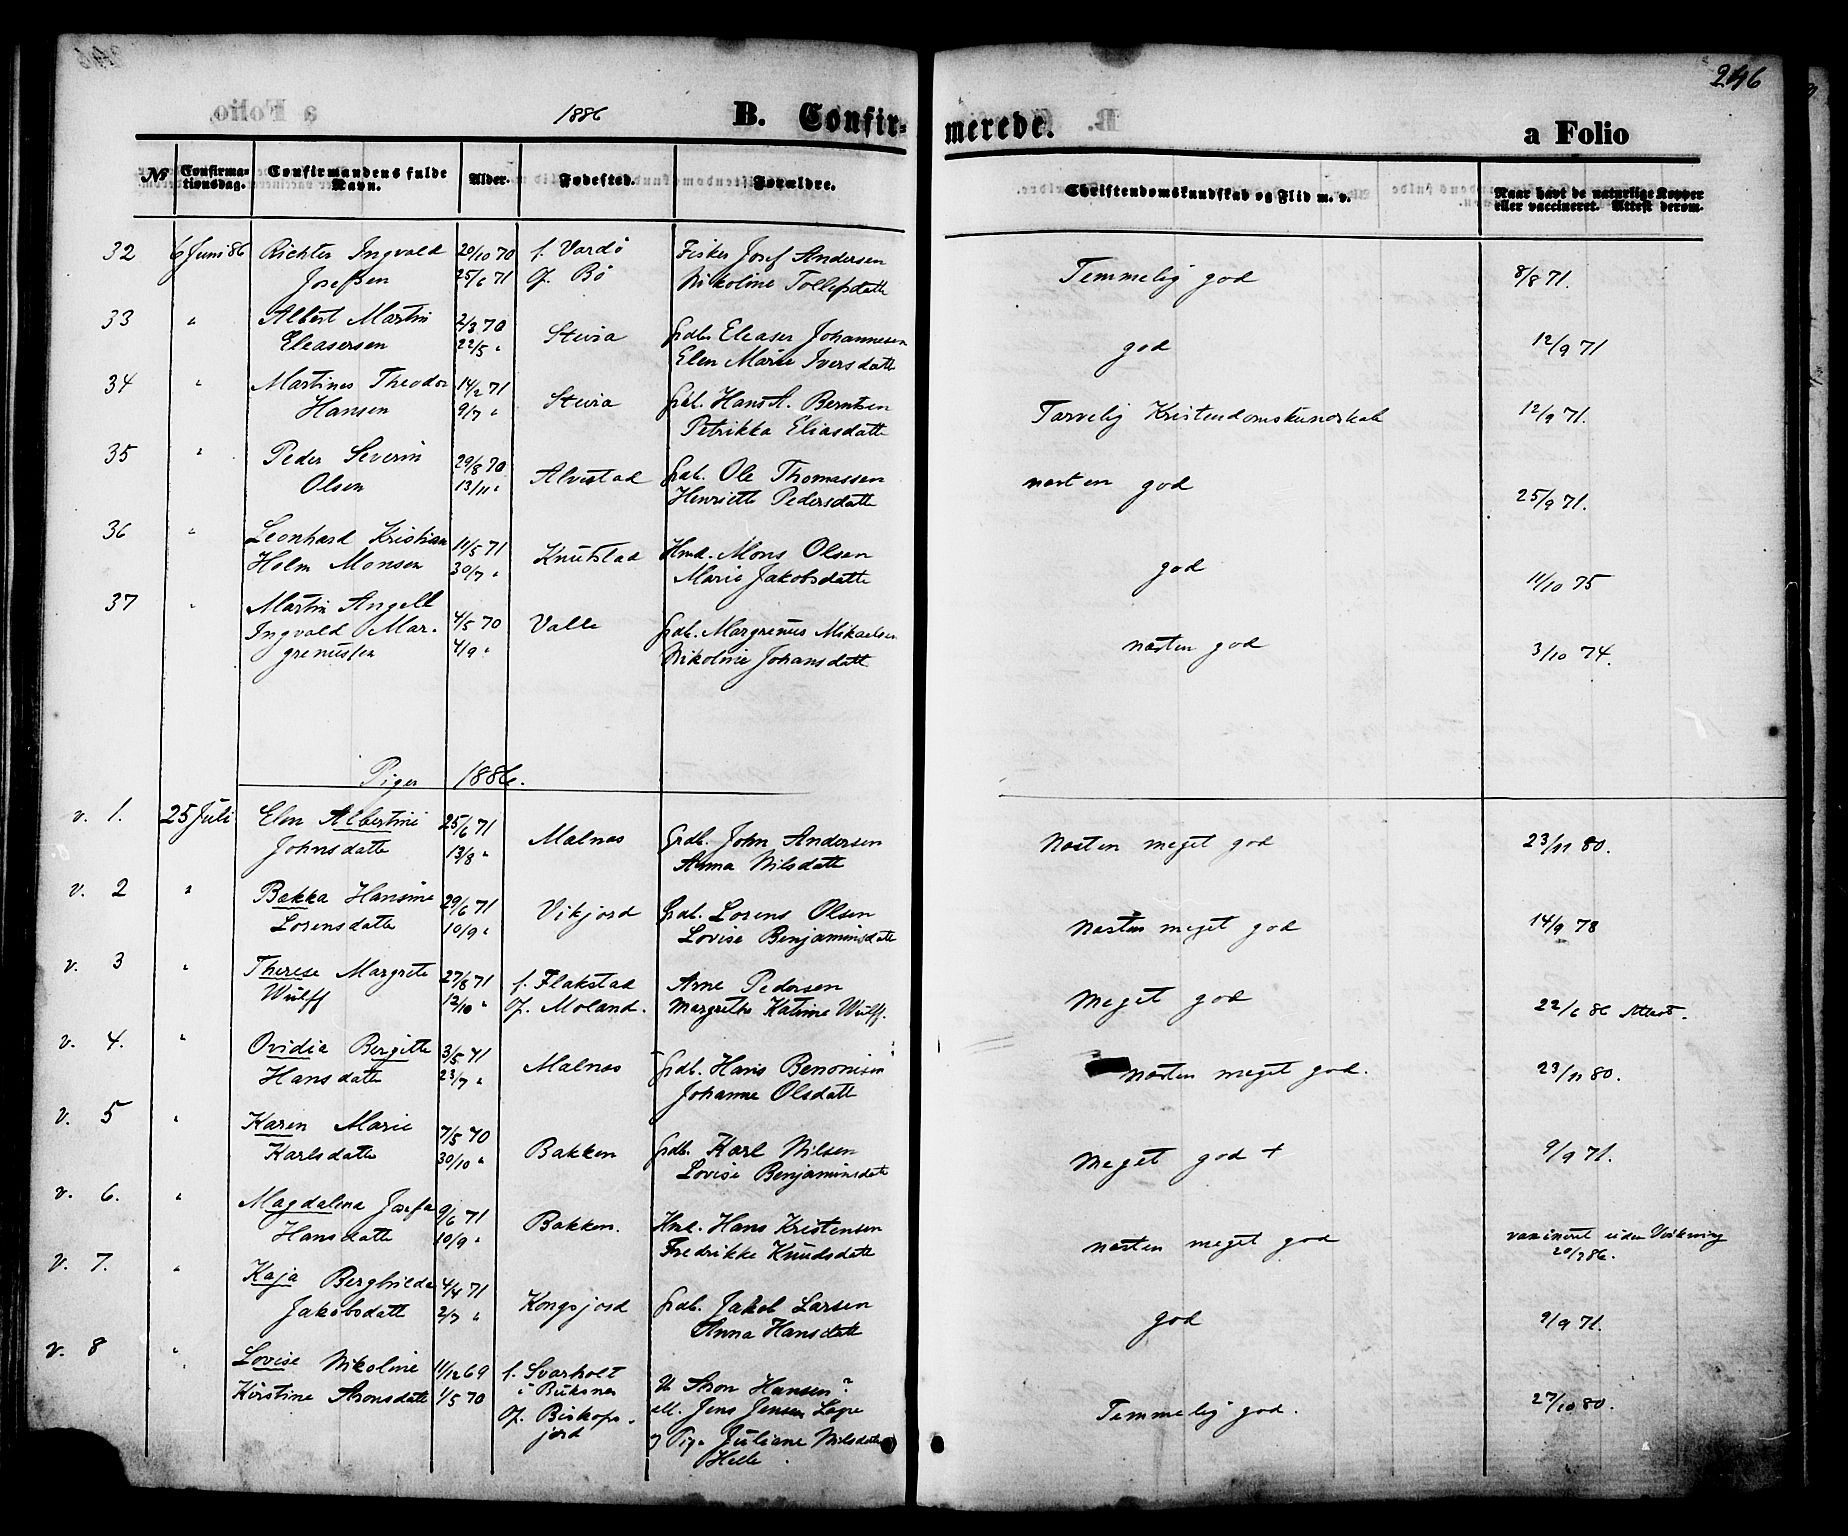 246
1886 B. Confirmerede. a Folio
No Confirmationsdag. Confirmandens fulde Navn. Alder. Fødested. Forældre. Christendomskundskab og Flid m. v. Naar havt de naturlige Kopper eller vaccineret. Attest derom.
32 6 Juni 86 Richter Ingvald 29/10 70 f. Vardö Fisker Josef Andersen
Josefsen 25/6 71 Of. Bö Nikoline Tollefsdatte Temmelig god 8/8 71.
33 " Albert Martin 2/3 70 Steiria Grdb. Eleaser Johannesen
Eleasersen 22/5 " Elen Marie Iversdatte god 12/9 71
34 " Martines Theodor 14/2 71 Steiria Grdb. Hans A. Berntsen
Hansen 9/7 " Petrikka Eliasdatte Tarvelig Kristendomskundskab 12/9 71.
35 " Peder Severin 29/8 70 Alvestad Grdb. Ole Thomassen
Olsen 13/11 " Henriette Pedersdatte næsten god 25/9 71.
36 " Leonhard Kristian 14/5 71 Knutstad Hmd. Mons Olsen
Holm Monsen 30/7 " Marie Jakobsdatte god 11/10 75
37 " Martin Angell
Ingvald Mar- 4/5 70 Valle Grdb. Margrenus Mikaelsen
grenussen 4/9 " Nikoline Johansdatte næsten god 3/10 74.
Piger 1886.
v. 1. 25 Juli Elen Albertine 25/6 71 Malnes Grdb. John Andersen
Johnsdatte 13/8 " Anna Nilsdatte Næsten meget god 23/11 80.
v. 2 " Bækka Hansine 29/6 71 Vikjord Grdb. Lorens Olsen
Lorensdatte 10/9 " Lovise Benjaminsdatte Næsten meget god 14/9 78
v. 3 " Therese Margrete 27/8 71 f. Flakstad Arne Pedersen
Wulff 12/10 " Of. Moland. Margrethe Katrine Wulff. Meget god 22/6 86 Attest.
v. 4. " Ovidia Bergitte 3/5 71 Malnes Grdb. Hans Benonisen
Hansdatte 23/7 " Johanne Olsdatte næsten meget god. 23/11 80.
v. 5 " Karen Marie 7/5 70 Bakken Grdb. Karl Nilsen
Karlsdatte 30/10 " Lovise Benjaminsdatte Meget god + 9/9 71.
v. 6. " Magdalena Josefa 9/6 71 Bakken. Hmd. Hans Kristensen
Hansdatte 10/9 " Fredrikke Knudsdatte næsten meget god vaxineret uden Virkning
20/7 86.
v. 7. " Kaja Berghilda 4/4 71 Kongsjord Grdb. Jakob Larsen
Jakobsdatte 2/7 " Anna Hansdatte god 9/9 71.
v. 8 " Lovise Nikoline 11/12 69 f. Svarholt
Kirstine Aronsdatte 1/5 70 i Buksnes U. Aron Hansen?
Of. Biskops- ell. Jens Jensen Lope
jord og Pige Juliane Nilsdatte
Helle. Temmelig god. 27/10 80.